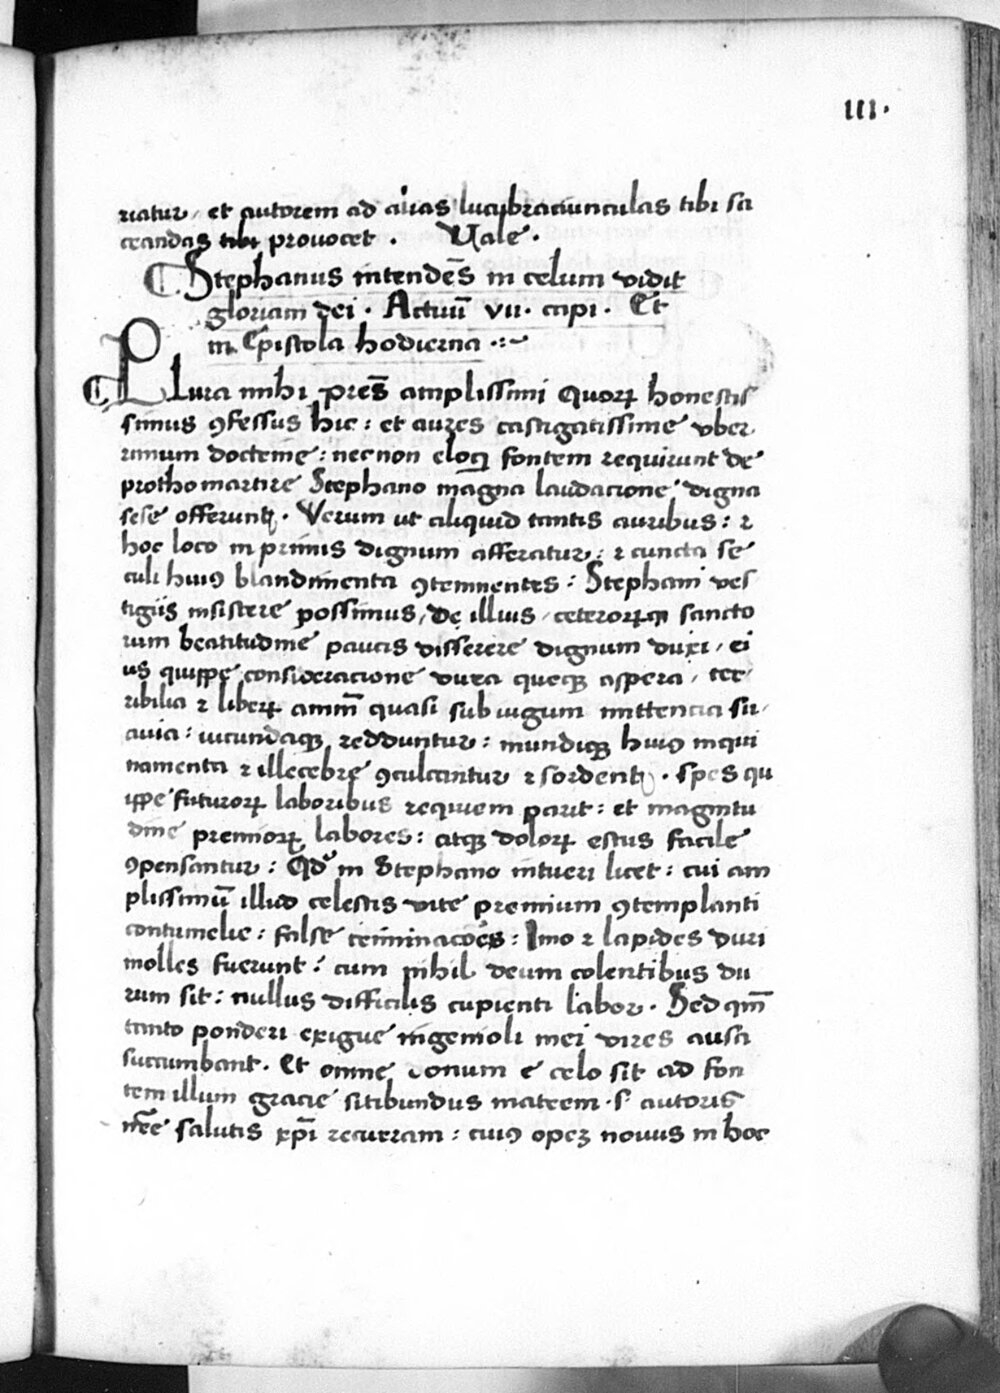 III.
riatur, et autorem ad alias lucubraciunculas tibi sa
crandas tibi provocet. Uale.
Stephanus intendēs in celum vidit
gloriam dei. Actuū vii. capi. Et
in Epistola hodierna
PLura mihi pres̄ amplissimi Quorꝝ honestis
simus ꝯfessus hic: et aures castigatissime vber
rimum docteme: necnon eloqͥ fontem requirunt de
prothomartire Stephano magna laudacione digna
sese offerunt. Verum ut aliquid tantis auribus: ⁊
hoc loco in primis dignum afferatur: ⁊ cuncta se
culi huiꝰ blandimenta ꝯtemnentes: Stephani ves
tigiis insistere possimus, de illius, ceterorꝝqꝫ sancto
rum beatitudine paucis disserere dignum duxi, ei
us quippe consideracione dura queqꝫ aspera, ter
ribilia ⁊ liberꝝ animū quasi sub iugum mittencia su
avia: iucundaqꝫ redduntur: mundiqꝫ huiꝰ inqui
namenta ⁊ illecebre ꝯculcantur ⁊ sordent. Spes qu
ippe futurorꝝ laboribus requiem parit: et magnitu
dine premiorꝝ labores: atqꝫ dolorꝝ estus facile
ꝯpensantur: Qd in Stephano intueri licet: cui am
plissimū illud celestis vite premium ꝯtemplanti
contumelie: false criminacōes: Imo ⁊ lapides duri
molles fuerunt: cum nihil deum colentibus du
rum sit: nullus difficilis cupienti labor. Sed qm̄
tanto ponderi exigue ingenioli mei vires ausa
succumbant. Et omne donum e celo sit ad fon
tem illum gracie sitibundus matrem. s. autoris
nr̄e salutis xp̄i recurram: cuiꝰ opeꝫ novus in hoc